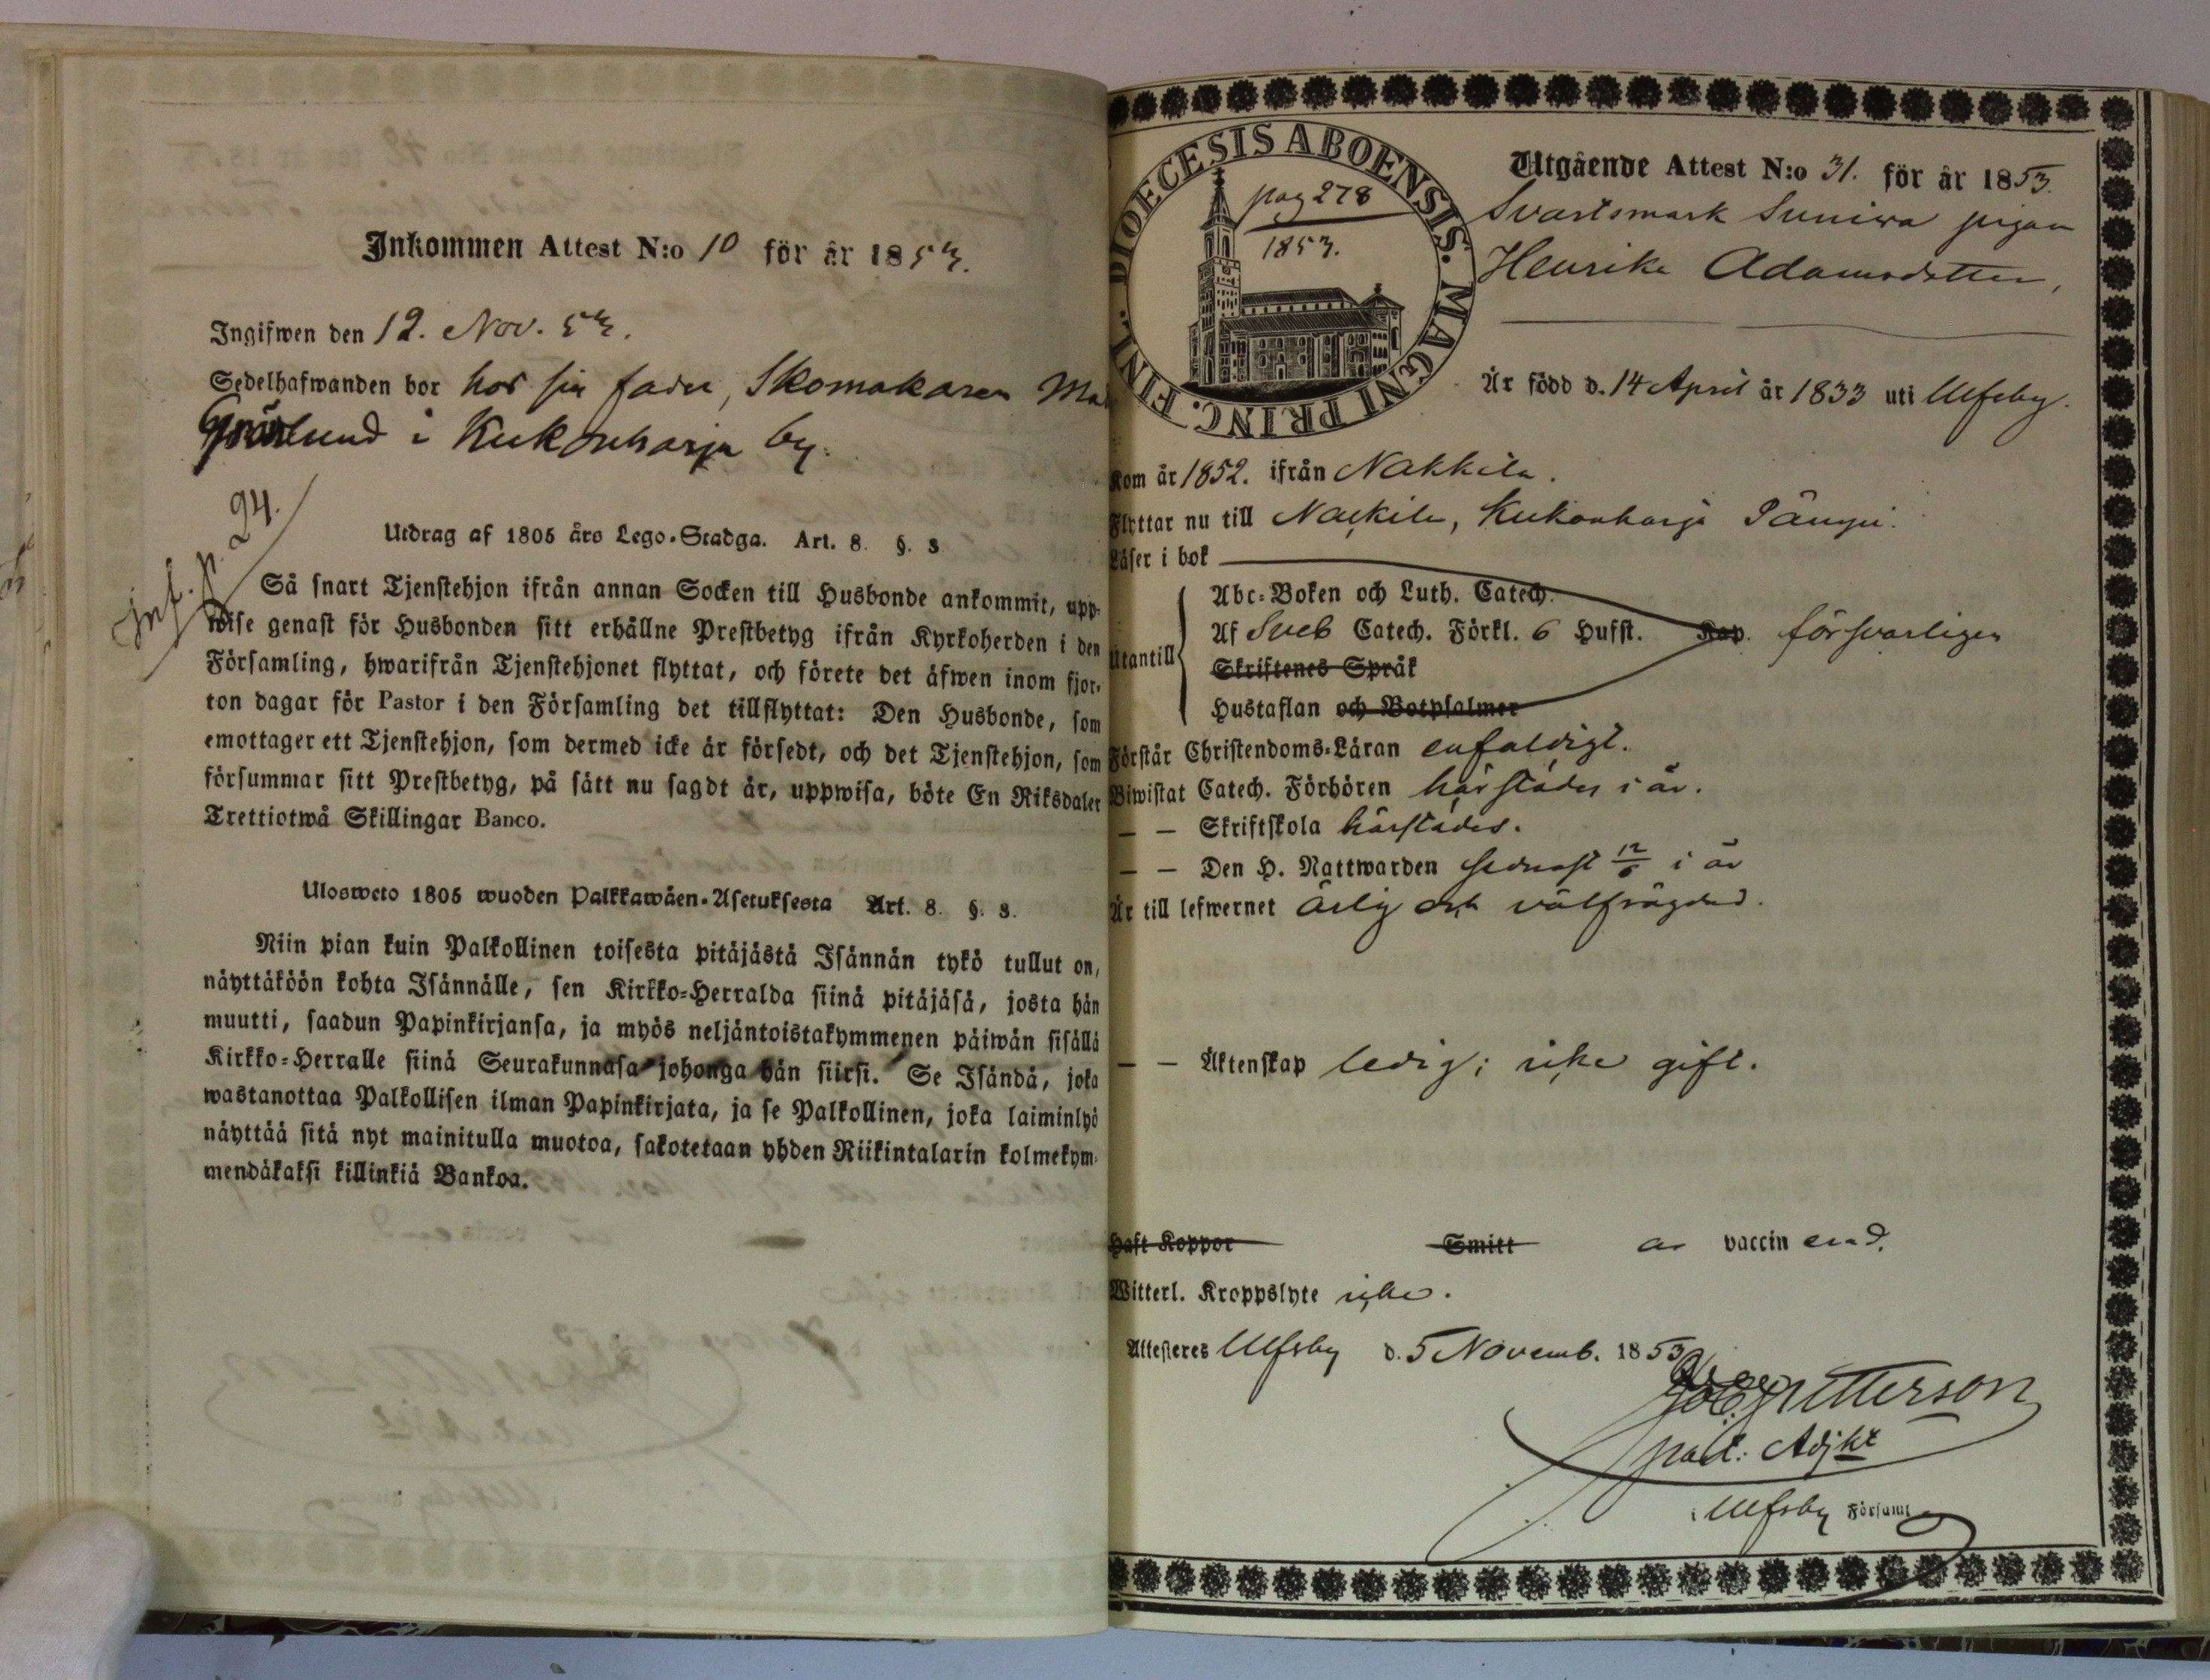 Inkommen Attest N:o 10 för år 1853.
Ingifwen den 12. Nov. 53.
Sedelhafwanden bor hos sin fader, Skomakaren
Grönlund i Kukonharja by.
inf. p. 294.
Utdrag af 1805 års Lego-Stadga. Art. 8. §. 3
Så snart Tjenstehjon ifrån annan Socken till Husbonde ankommit, upp-
wise genast för Husbonden sitt erhållne Prestbetyg ifrån Kyrkoherden i den
Församling, hwarifrån Tjenstehjonet flyttat, och förete det äfwen inom fjor-
ton dagar för Pastor i den Församling det tillflyttat: Den Husbonde, som
emottager ett Tjenstehjon, som dermed icke är försedt, och det Tjenstehjon, som
försummar sitt Prestbetyg, på sätt nu sagdt är, uppwisa, böte En Riksdaler
Trettiotwå Skillingar Banco.
Ulosweto 1805 wuoden Palkkawäen-Asetuksesta Art. 8. §. 3.
Niin pian kuin Palkollinen toisesta pitäjästä Isännän tykö tullut on,
näyttäköön kohta Isännälle, sen Kirkko-Herralda siinä pitäjäsä, josta hän
muutti, saadun Papinkirjansa, ja myös neljäntoistakymmenen päiwän sisällä
Kirkko-Herralle siinä Seurakunnasa johonga hän siirsi. Se Isändä, joka
wastanottaa Palkollisen ilman Papinkirjata, ja se Palkollinen, joka laiminlyö
näyttää sitä nyt mainitulla muotoa, sakotetaan yhden Riikintalarin kolmekym-
mendäkaksi killinkiä Bankoa.
DIOECESIS ABOENSIS. MAGNI PRINC. FINL.
pag 278
1853.
Utgående Attest N:o 31. för år 1853.
Svartsmark Suniwa pigan
Henrika Adamsdotter,
Är född d. 14 April år 1833 uti Ulfsby.
Kom år 1852. ifrån Nakkila.
Flyttar nu till Nackila, Kukonharja
Läser i bok
Abc-Boken och Luth. Catech.
Utantill Af Sveb Catech. Förkl. 6 Hufst. Kap. försvarligen
Skriftenes Språk
Hustaflan och Botpsalmer
Förstår Christendoms-Läran enfaldigt.
Biwistat Catech. Förhören härstädes i år.
— — Skriftskola härstädes.
— — Den H. Nattwarden sednast 12/6 i år
Är till lefwernet ärlig och välfrägdad.
— — Äktenskap ledig; icke gift.
Haft Koppor Smitt är vaccinerad.
Witterl. Kroppslyte icke.
Attesteras Ulfsby d. 5 Novemb. 1853
Petterson
past: Adjkt
i Ulfsby Församl